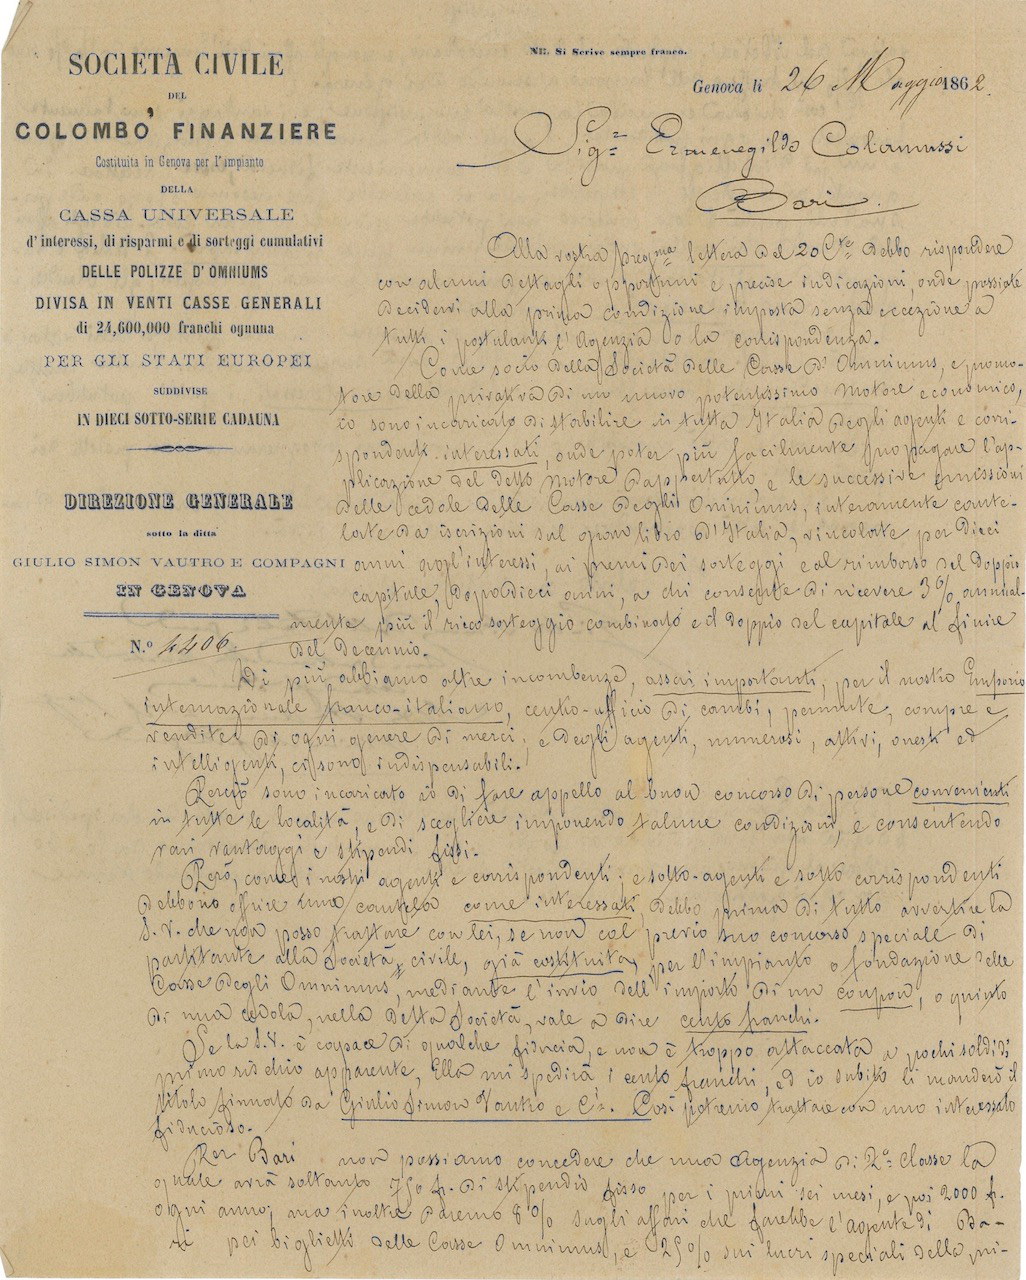 SOCIETÀ CIVILE
DEL
COLOMBO FINANZIERE
Costituita in Genova per l'impianto
DELLA
CASSA UNIVERSALE
d'interessi, di risparmi e di sorteggi cumulativi
DELLE POLIZZE D'OMNIUMS
DIVISA IN VENTI CASSE GENERALI
di 24,600,000 franchi ognuna
PER GLI STATI EUROPEI
SUDDIVISE
IN DIECI SOTTO-SERIE CADAUNA
DIREZIONE GENERALE
sotto la ditta
GIULIO SIMON VAUTRO E COMPAGNI
IN GENOVA
N.º 4406.
NB. Si Scrive sempre franco.
Genova li 26 Maggio 1862.
Sig.r Ermenegildo Colamussi
Bari.
Alla vostra preg.ma lettera del 20 C.te debbo rispondere
con alcuni dettagli opportuni e precise indicazioni, onde possiate
decidervi alla prima condizione imposta senza eccezione a
tutti i postulanti l'Agenzia o la corrispondenza.
Come socio della Società delle Casse d'Omnimus, e promo-
tore della privativa di un nuovo potentissimo motore economico,
io sono incaricato di stabilire in tutta Italia degli agenti e corri-
spondenti interessati, onde poter più facilmente propagare l'ap-
plicazione del detto motore dappertutto, e le successive emissioni
delle cedole delle Casse degli Omnimus, interamente conte-
late da iscrizioni sul gran libro d'Italia, vincolate per dieci
anni agl'interessi, ai premi dei sorteggi e al rimborso del doppio
capitale, dopo dieci anni, a chi consente di ricevere 3% annual-
mente più il ricco sorteggio combinato e il doppio del capitale al finire
del decennio.
Di più abbiamo altre incombenze, assai importanti, per il nostro Emporio
internazionale franco-italiano, centro-ufficio di cambi, permute, compre e
vendite di ogni genere di merci; e degli agenti, numerosi, attivi, onesti ed
intelligenti, ci sono indispensabili.
Perciò sono incaricato io di fare appello al buon concorso di persone convenienti
in tutte le località, e di sceglierle imponendo talune condizioni, e consentendo
vari vantaggi e stipendi fissi.
Però, come i nostri agenti e corrispondenti, e sotto-agenti e sotto corrispondenti
debbono offrire una cautela come interessati, debbo prima di tutto avvertire la
S.V. che non posso trattare con lei, se non col previo suo concorso speciale di
partitante alla Società civile, già costituita, per l'impianto o fondazione delle
Casse degli Omnimus, mediante l'invio dell'importo di un coupon, o quinto
di una cedola, nella detta Società, vale a dire cento franchi.
Se la S.V. è capace di qualche fiducia, e non è troppo attaccata a pochi soldi di
primo rischio apparente, Ella mi spedirà i cento franchi, ed io subito li manderò il
titolo firmato da Giulio Simon Vautro e C.ia. Così potremo trattare con uno interessato
fiducioso.
Per Bari non possiamo concedere che una Agenzia di 2.a classe la
quale avrà soltanto 750 f. di stipendio fisso per i primi sei mesi, e poi 2000 f.
ogni anno; ma inoltre daremo 8% sugli affari che farebbe l'agente di Ba-
ri pei biglietti delle Casse Omnimus, e 25% sui lucri speciali della pri-